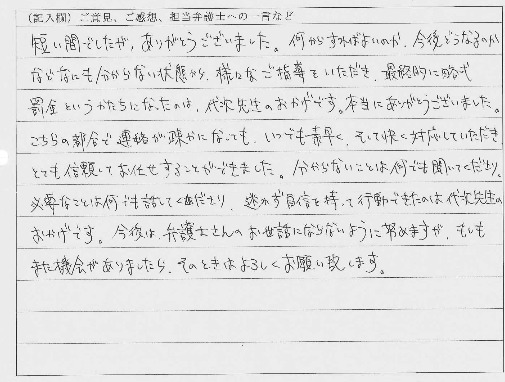 (記入欄) ご意見、ご感想、担当弁護士への一言など
短い間でしたが、ありがとうございました。何からすればよいのか、今後どうなるのか
などなにも分からない状態から、様々なご指導をいただき、最終的に略式
罰金というかたちになったのは、代次先生のおかげです。本当にありがとうございました。
こちらの都合で連絡が疎かになっても、いつでも素早く、そして快く対応していただき
とても信頼してお任せすることができました。分からないことは何でも聞いてくださり、
必要なことは何でも話してくださり、迷わず自信を持って行動できたのは代次先生の
おかげです。今後は、弁護士さんのお世話にならないように努めますが、もしも
また機会がありましたら、そのときはよろしくお願い致します。